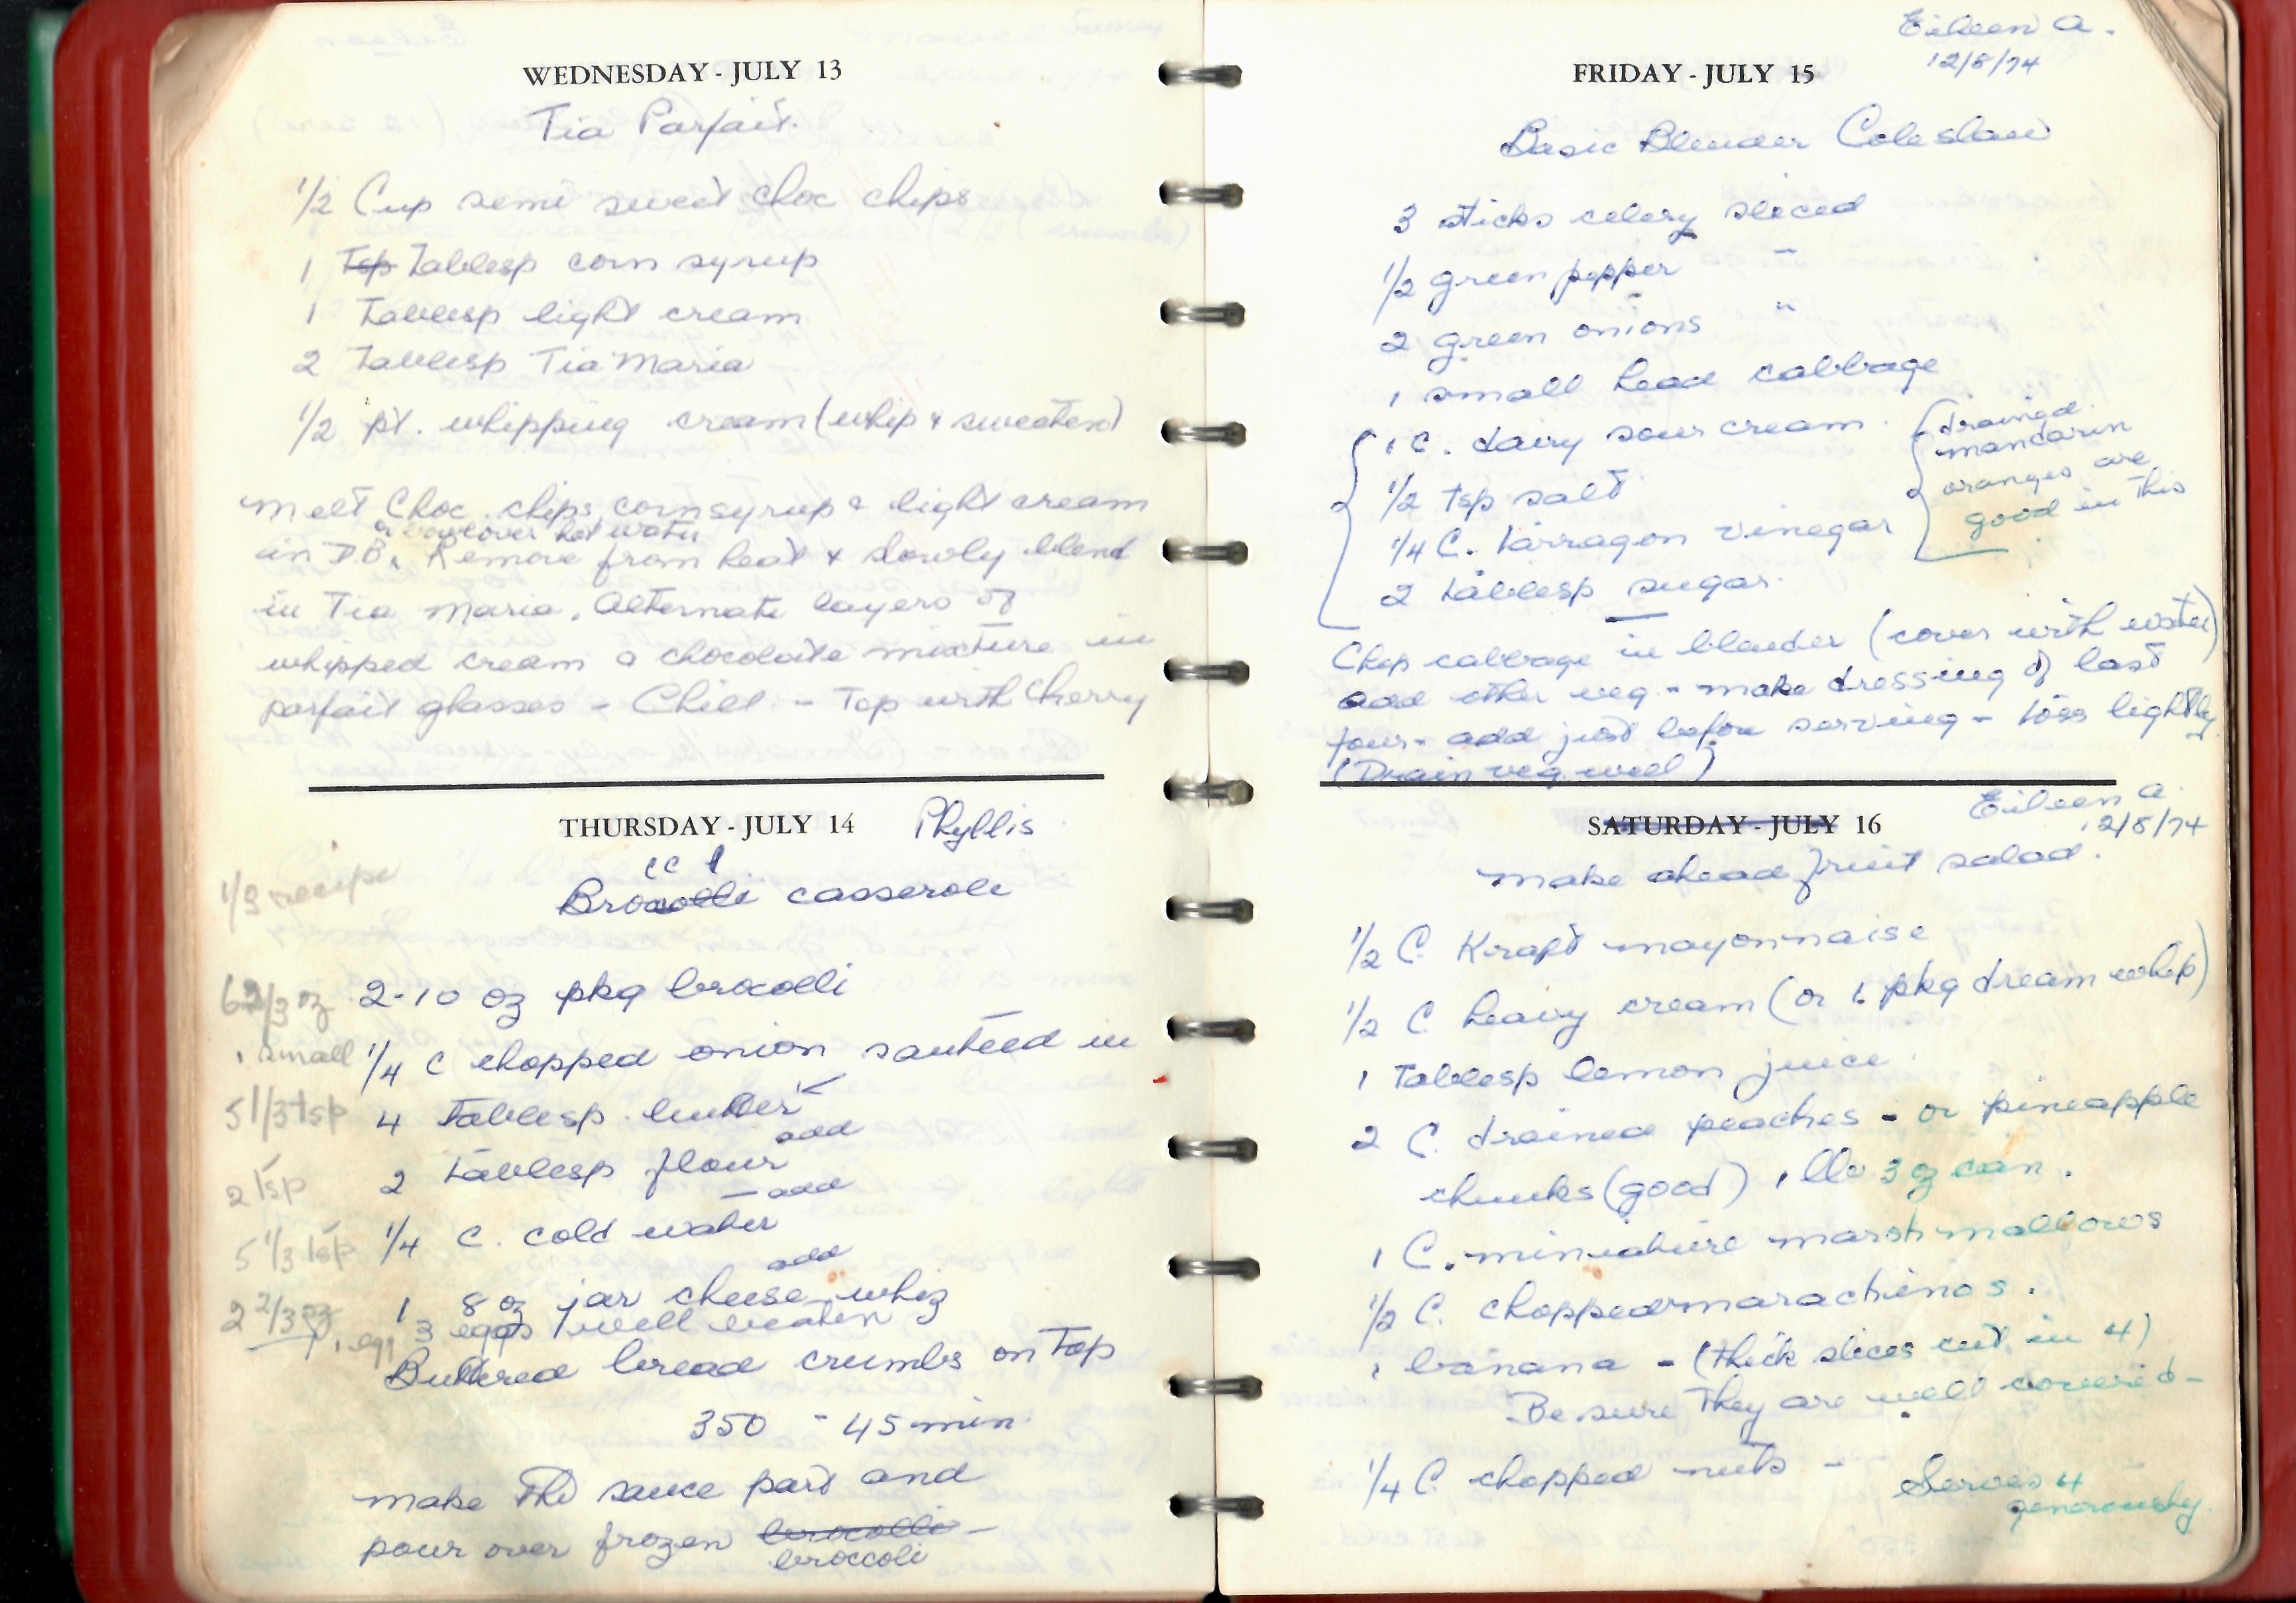 WEDNESDAY - JULY 13
Tia Parfait.
1/2 Cup semi sweet choc chips
1 Tsp Tablesp corn syrup
1 Tablesp light cream
2 Tablesp Tia Maria
1/2 pt. whipping cream (whip & sweeten)
Melt Choc. chips, corn syrup & light cream
or bowl over hot water
in D B. Remove from heat & slowly blend
in Tia Maria. Alternate layers of
whipped cream & chocolate mixture in
parfait glasses - Chill - Top with Cherry
THURSDAY - JULY 14 Phyllis
cc l
1/3 recipe
Brocolli casserole
6 2/3 oz 2-10 oz pkg brocolli
1 small 1/4 C chopped onion sauteed in
5 1/3 tsp 4 Tablesp butter
add
2 tsp 2 Tablesp flour
- add
5 1/3 tsp 1/4 C. cold water
add
2 2/3 oz 1 8 oz jar cheese whiz
1 egg 3 eggs well beaten
Buttered bread crumbs on Top
350 - 45 min.
make the sauce part and
pour over frozen brocolli -
broccoli
Eileen A.
12/8/74
FRIDAY - JULY 15
Basic Blender Cole slaw
3 sticks celery sliced
1/2 green pepper "
2 green onions "
1 small head cabbage
1 C. dairy sour cream.
1/2 tsp salt
1/4 C. tarragon vinegar
2 tablesp sugar.
drained
mandarin
oranges are
good in this
Chop cabbage in blender (cover with water)
add other veg - make dressing of last
four - add just before serving - toss lightly
(Drain veg. well)
Eileen A.
SATURDAY - JULY 16 12/8/74
Make ahead fruit salad.
1/2 C. Kraft mayonnaise
1/2 C heavy cream (or 1 pkg dream whip)
1 Tablesp lemon juice
2 C. drained peaches - or pineapple
chunks (good) 1 lb 3 oz can.
1 C. miniature marshmallows
1/2 C. chopped marachinos.
1 banana - (thick slices cut in 4)
Be sure they are well covered -
1/4 C. chopped nuts -
Serves 4
generously.